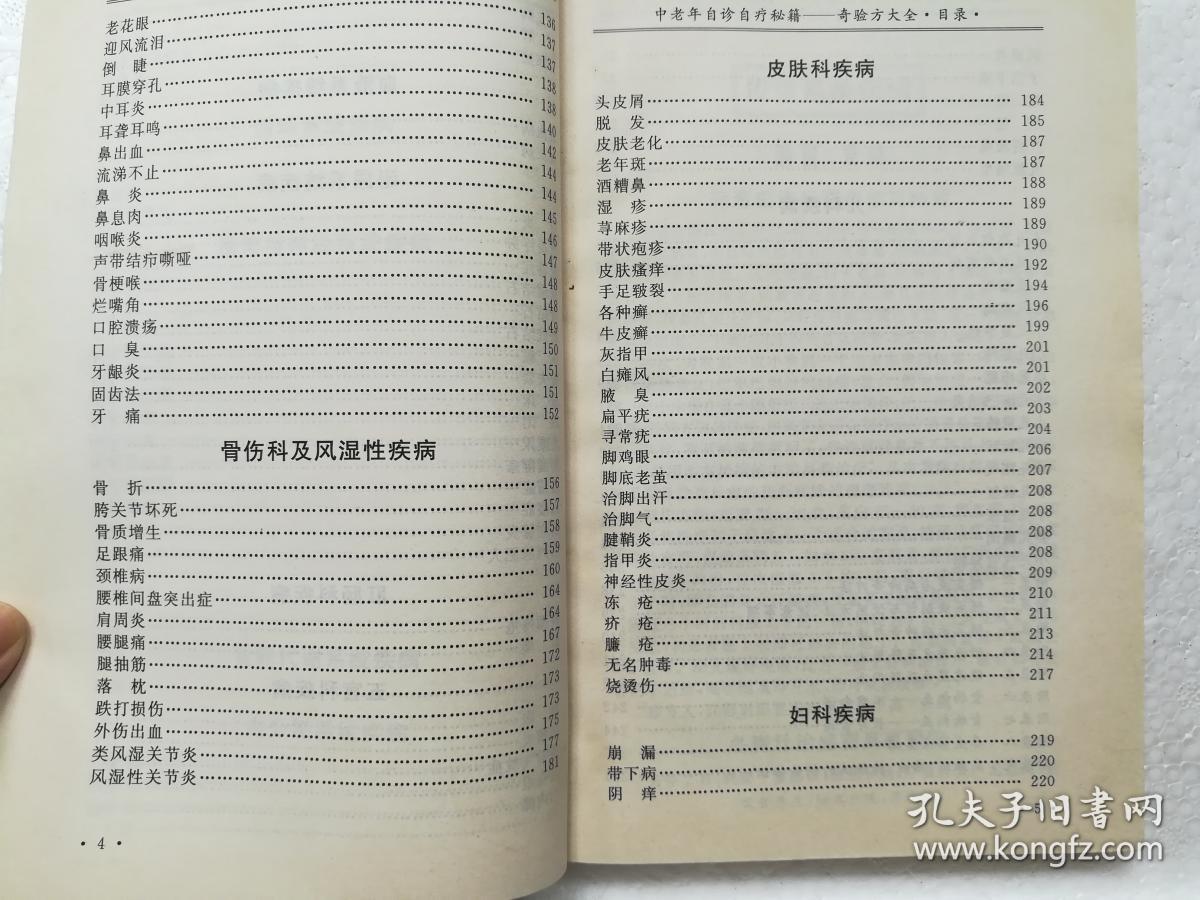 老花眼……136
迎风流泪……137
倒　睫……137
耳膜穿孔……138
中耳炎……138
耳聋耳鸣……140
鼻出血……142
流涕不止……144
鼻　炎……144
鼻息肉……145
咽喉炎……146
声带结疖嘶哑……147
骨梗喉……148
烂嘴角……148
口腔溃疡……149
口　臭……150
牙龈炎……151
固齿法……151
牙　痛……152
骨伤科及风湿性疾病
骨　折……156
胯关节坏死……157
骨质增生……158
足跟痛……159
颈椎病……160
腰椎间盘突出症……164
肩周炎……164
腰腿痛……167
腿抽筋……172
落　枕……173
跌打损伤……173
外伤出血……175
类风湿关节炎……177
风湿性关节炎……181
· 4 ·
中老年自诊自疗秘籍——奇验方大全·目录·
皮肤科疾病
头皮屑……184
脱　发……185
皮肤老化……187
老年斑……187
酒糟鼻……188
湿　疹……189
荨麻疹……189
带状疱疹……190
皮肤瘙痒……192
手足皲裂……194
各种癣……196
牛皮癣……199
灰指甲……201
白癜风……201
腋　臭……202
扁平疣……203
寻常疣……204
脚鸡眼……206
脚底老茧……207
治脚出汗……208
治脚气……208
腱鞘炎……208
指甲炎……208
神经性皮炎……209
冻　疮……210
疥　疮……211
臁　疮……213
无名肿毒……214
烧烫伤……217
妇科疾病
崩　漏……219
带下病……220
阴　痒……220
孔夫子旧书网
www.kongfz.com